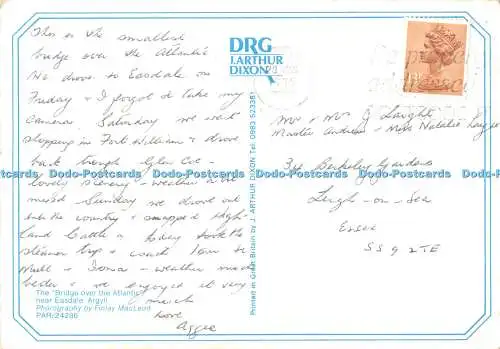 This is the smallest
bridge over the Atlantic
We drove to Easdale on
Friday & I forgot to take my
camera. Saturday we went
shopping in Fort William & drove
back through Glen Coe -
lovely scenery - weather a bit
mixed Sunday we drove out
into the country & snapped High-
land Cattle & today took the
steamer trip & coach tour to
Mull & Iona - weather much
better & we enjoyed it very
much
Love
Aggie
The "Bridge over the Atlantic"
near Easdale, Argyll
Photography by Finlay MacLeod
PAR/24286
DRG
J. ARTHUR
DIXON
Printed in Great Britain by J. ARTHUR DIXON Tel: 0983 523381
Mr & Mrs J Laught
Master Andrew - Miss Natalie
34 Berkeley Gardens
Leigh-on-Sea
Essex
SS9 2TE
Dodo-Postcards Dodo-Postcards Dodo-Postcards Dodo-Postcards Dodo-Postcards